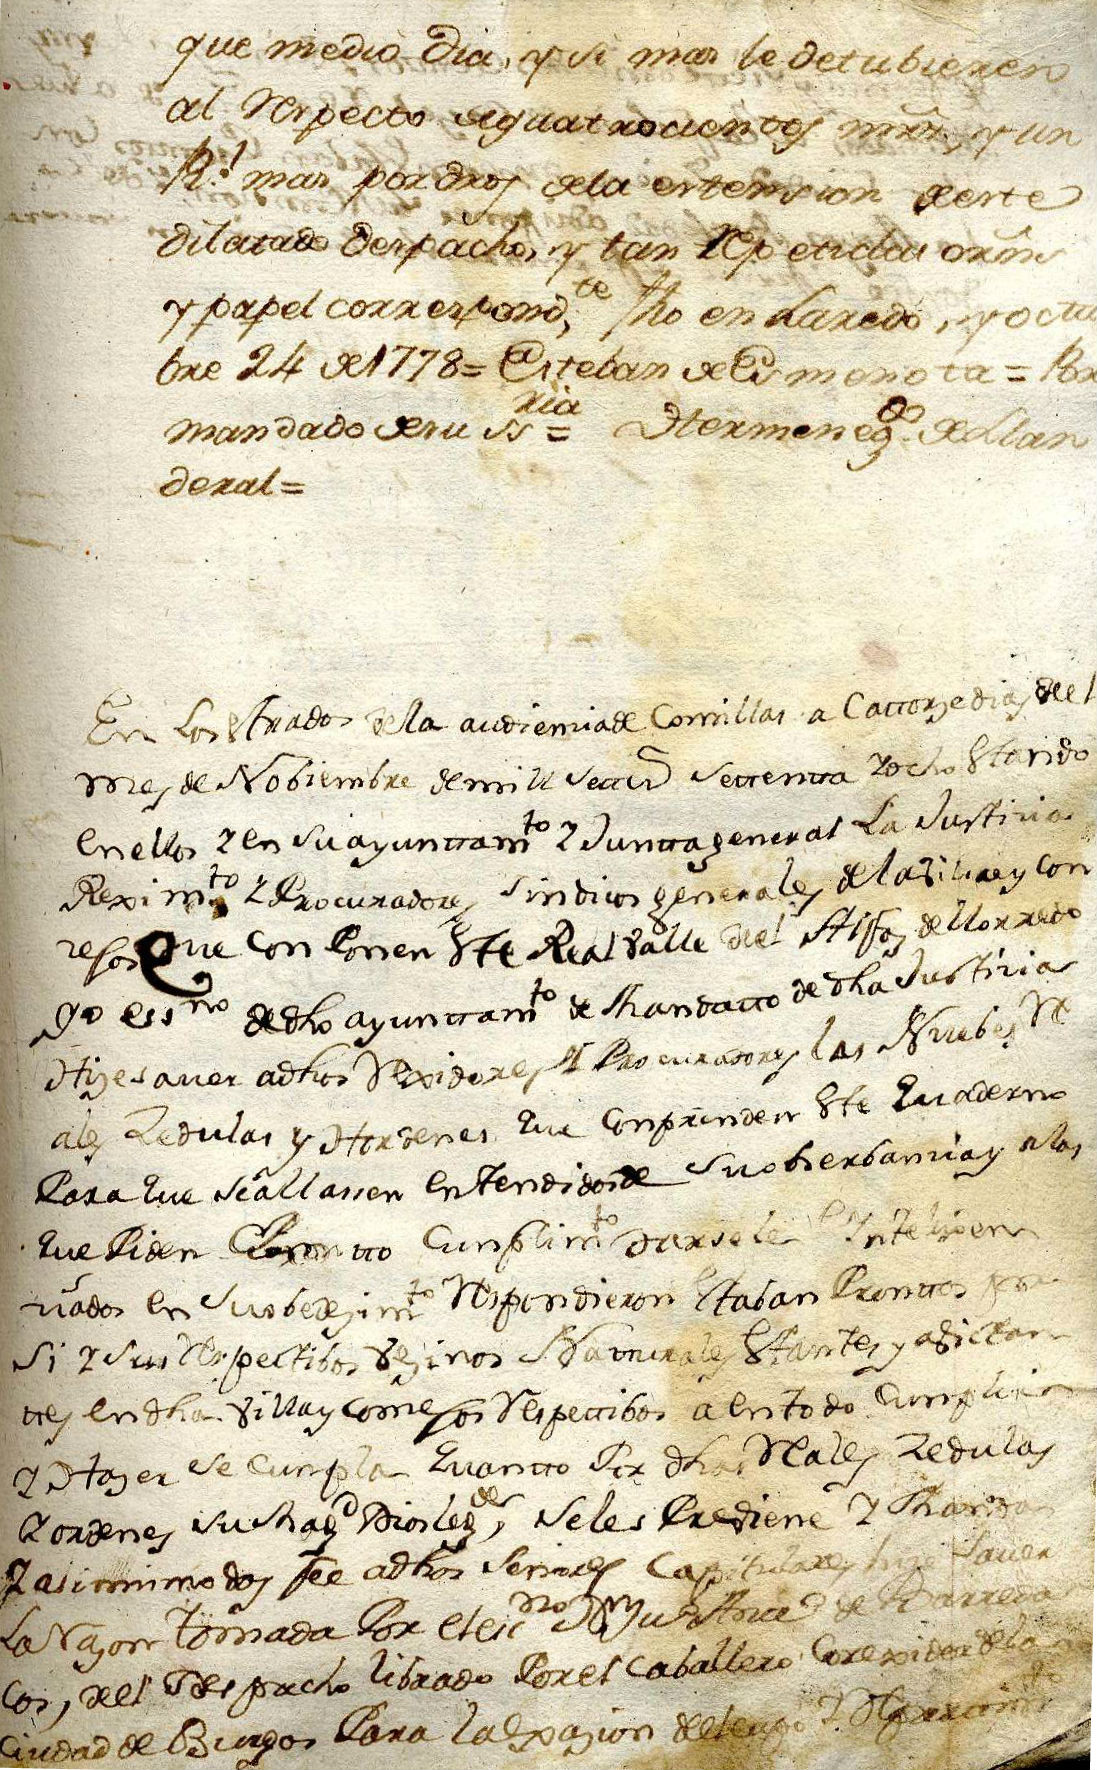 que medio dia, y si mas le detubieren
al respecto de quatrocientos mrs, y un
Rl. mas por dros de la extension de este
dilatado despacho, y tan repetidas orns
y papel correspond,te fho en Laredo, y octu
bre 24 de 1778 = Esteban de Esmenota = Por
mandado de su ssria = Hermenegdo. de Llan
deral =
En Los Estrados de la audiencia de Comillas a Cattorze dias del
mes de Nobiembre de mill settezs settentta y ocho Estando
en ellos y en su ayunttamto y Juntta general La Justicia
Reximto y Procuradores sindicos generales de la billa y con
zejos que Conponen Este Real balle del Alfoz de Lloredo
yo essno de dho ayunttamto de Mandatto de dha Justicia
Hize saver a dhos Rexidores y Procuradores las Nuebes Re
ales Zedulas y Hordenes que Conprenden Este quaderno
Para que se allassen entendidos de su obserbancia y a las
que Piden Prontto Cunplimto
ziados en su obedezimto Respondieron Estaban Pronttos por
si y sus Respectibos bezinos Naturales Estantes y abittan
ttes en dha billa y conzejos Respecttibos a en todo Cunplir
y Hazer se Cunpla quantto Por dhas Reales Zedulas
y ordenes su Magd Dios le gde, se les Prebiene y Manda
y asimismo doy fee a dhos señores Capitulares hize saver
La Razon tomada Por el essno Dn Juan Antto de Barreda
Cos, del Despacho librado Por el Caballero Correxidor de la
Ciudad de Burgos Para la